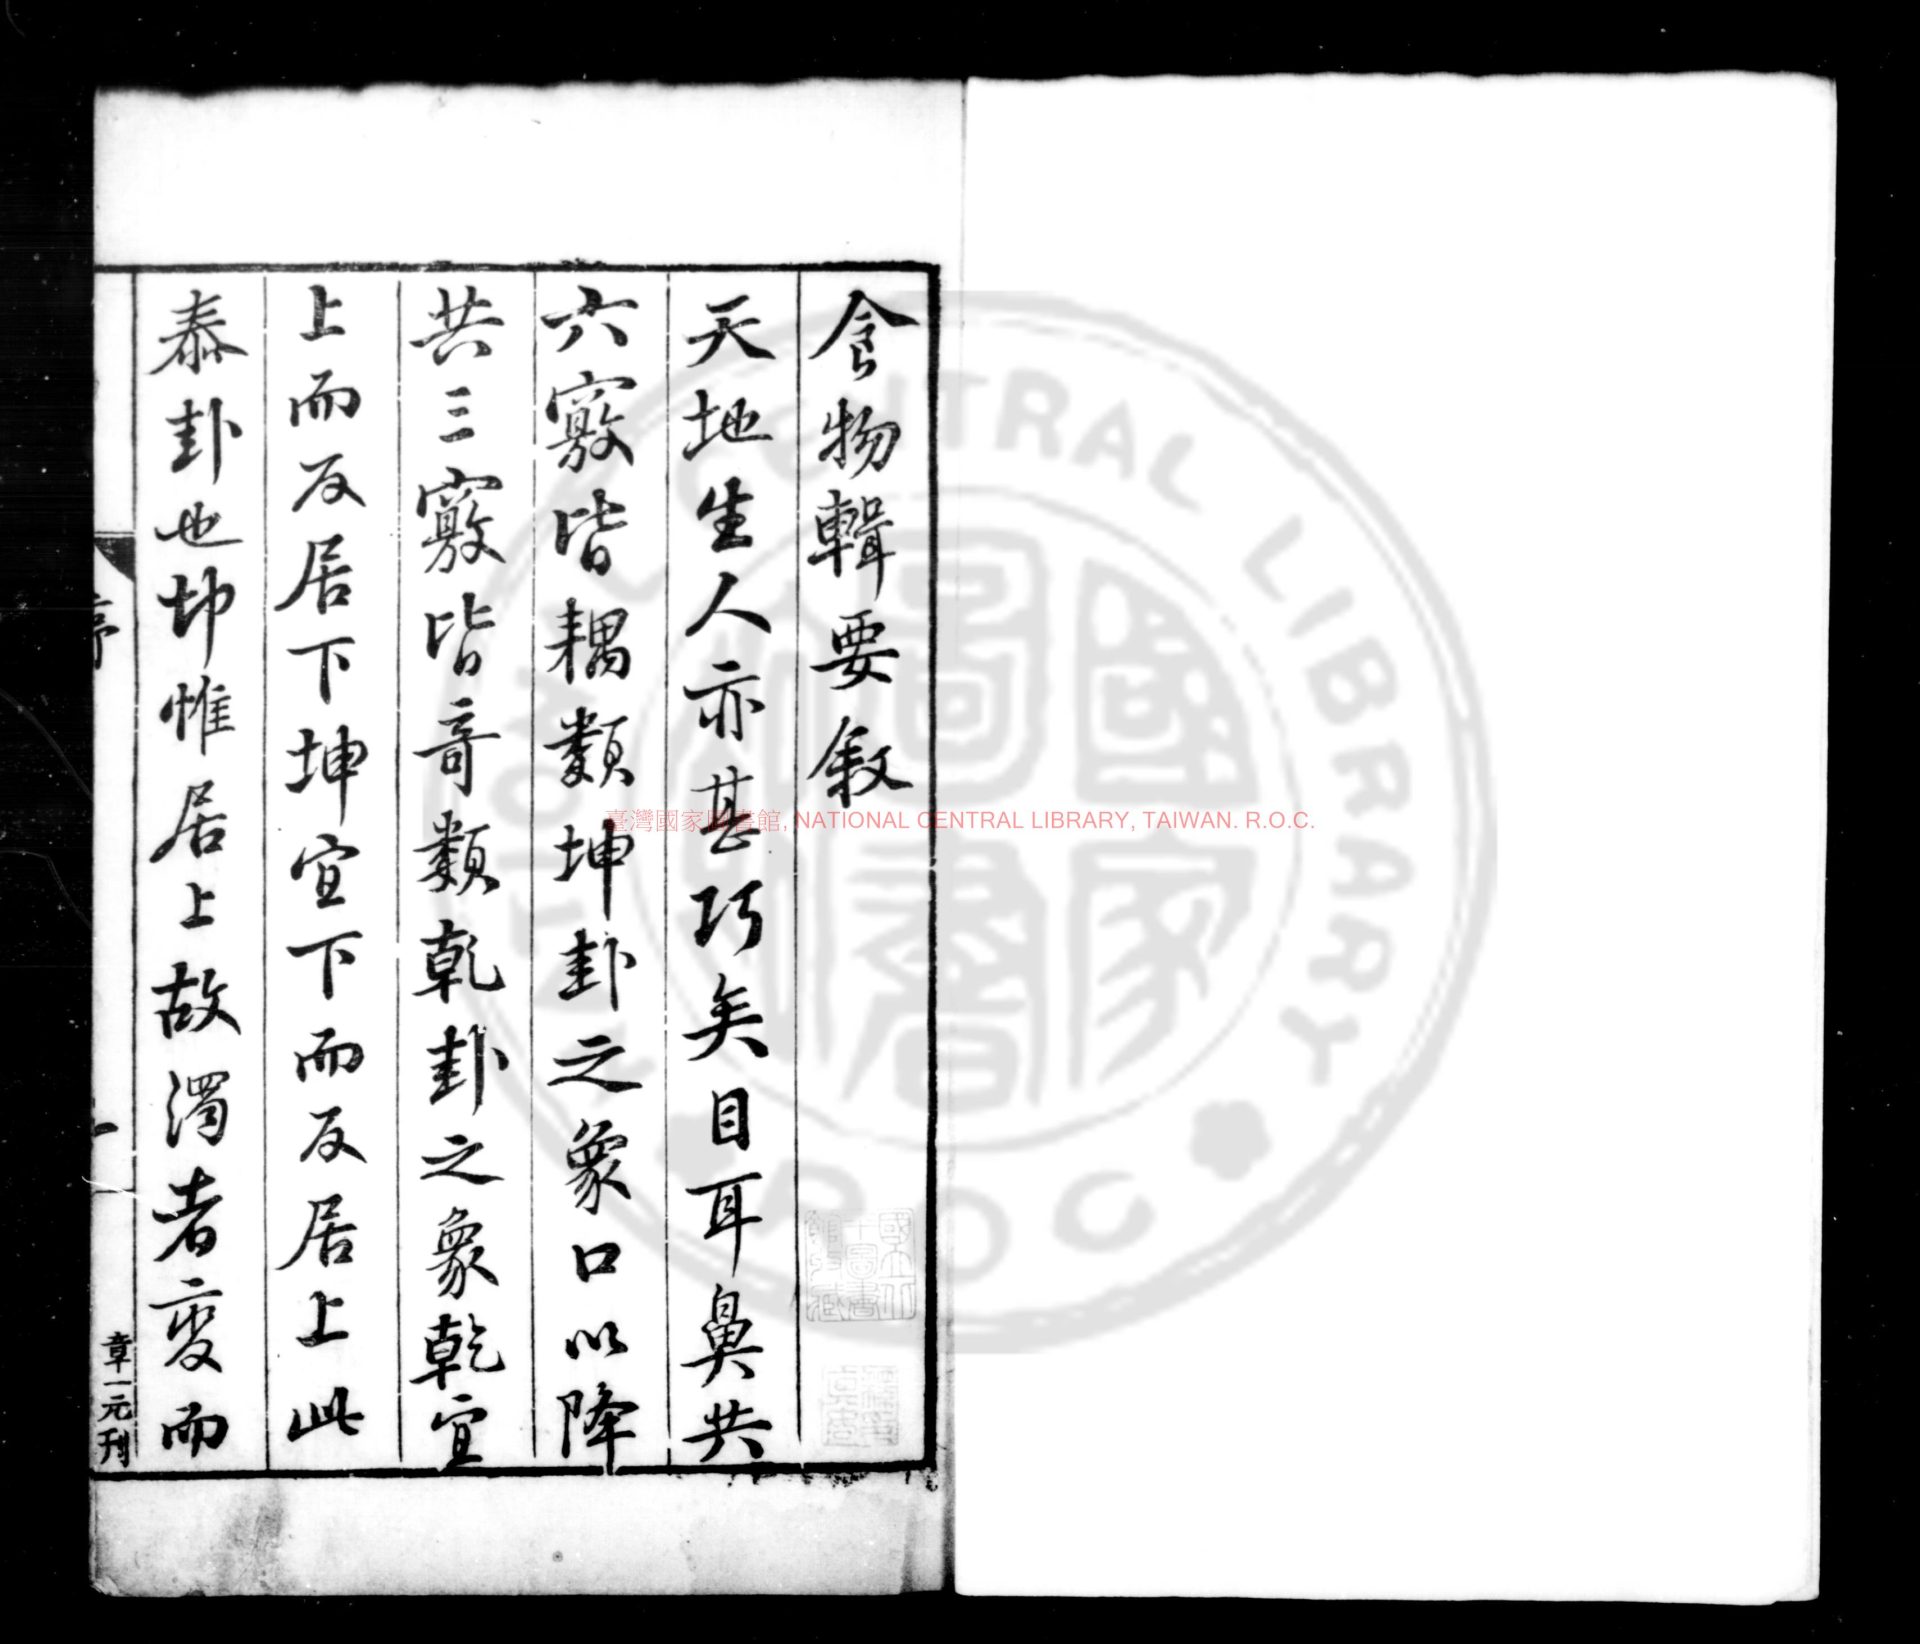 食物輯要敘
天地生人亦甚巧矣目耳鼻共
六竅皆耦類坤卦之象口以降
共三竅皆奇類乾卦之象乾宜
上而反居下坤宜下而反居上此
泰卦也坤惟居上故濁者變而
序
一
章一元刊
臺灣國家圖書館, NATIONAL CENTRAL LIBRARY, TAIWAN. R.O.C.
NATIONAL CENTRAL LIBRARY
R.O.C
國家圖書